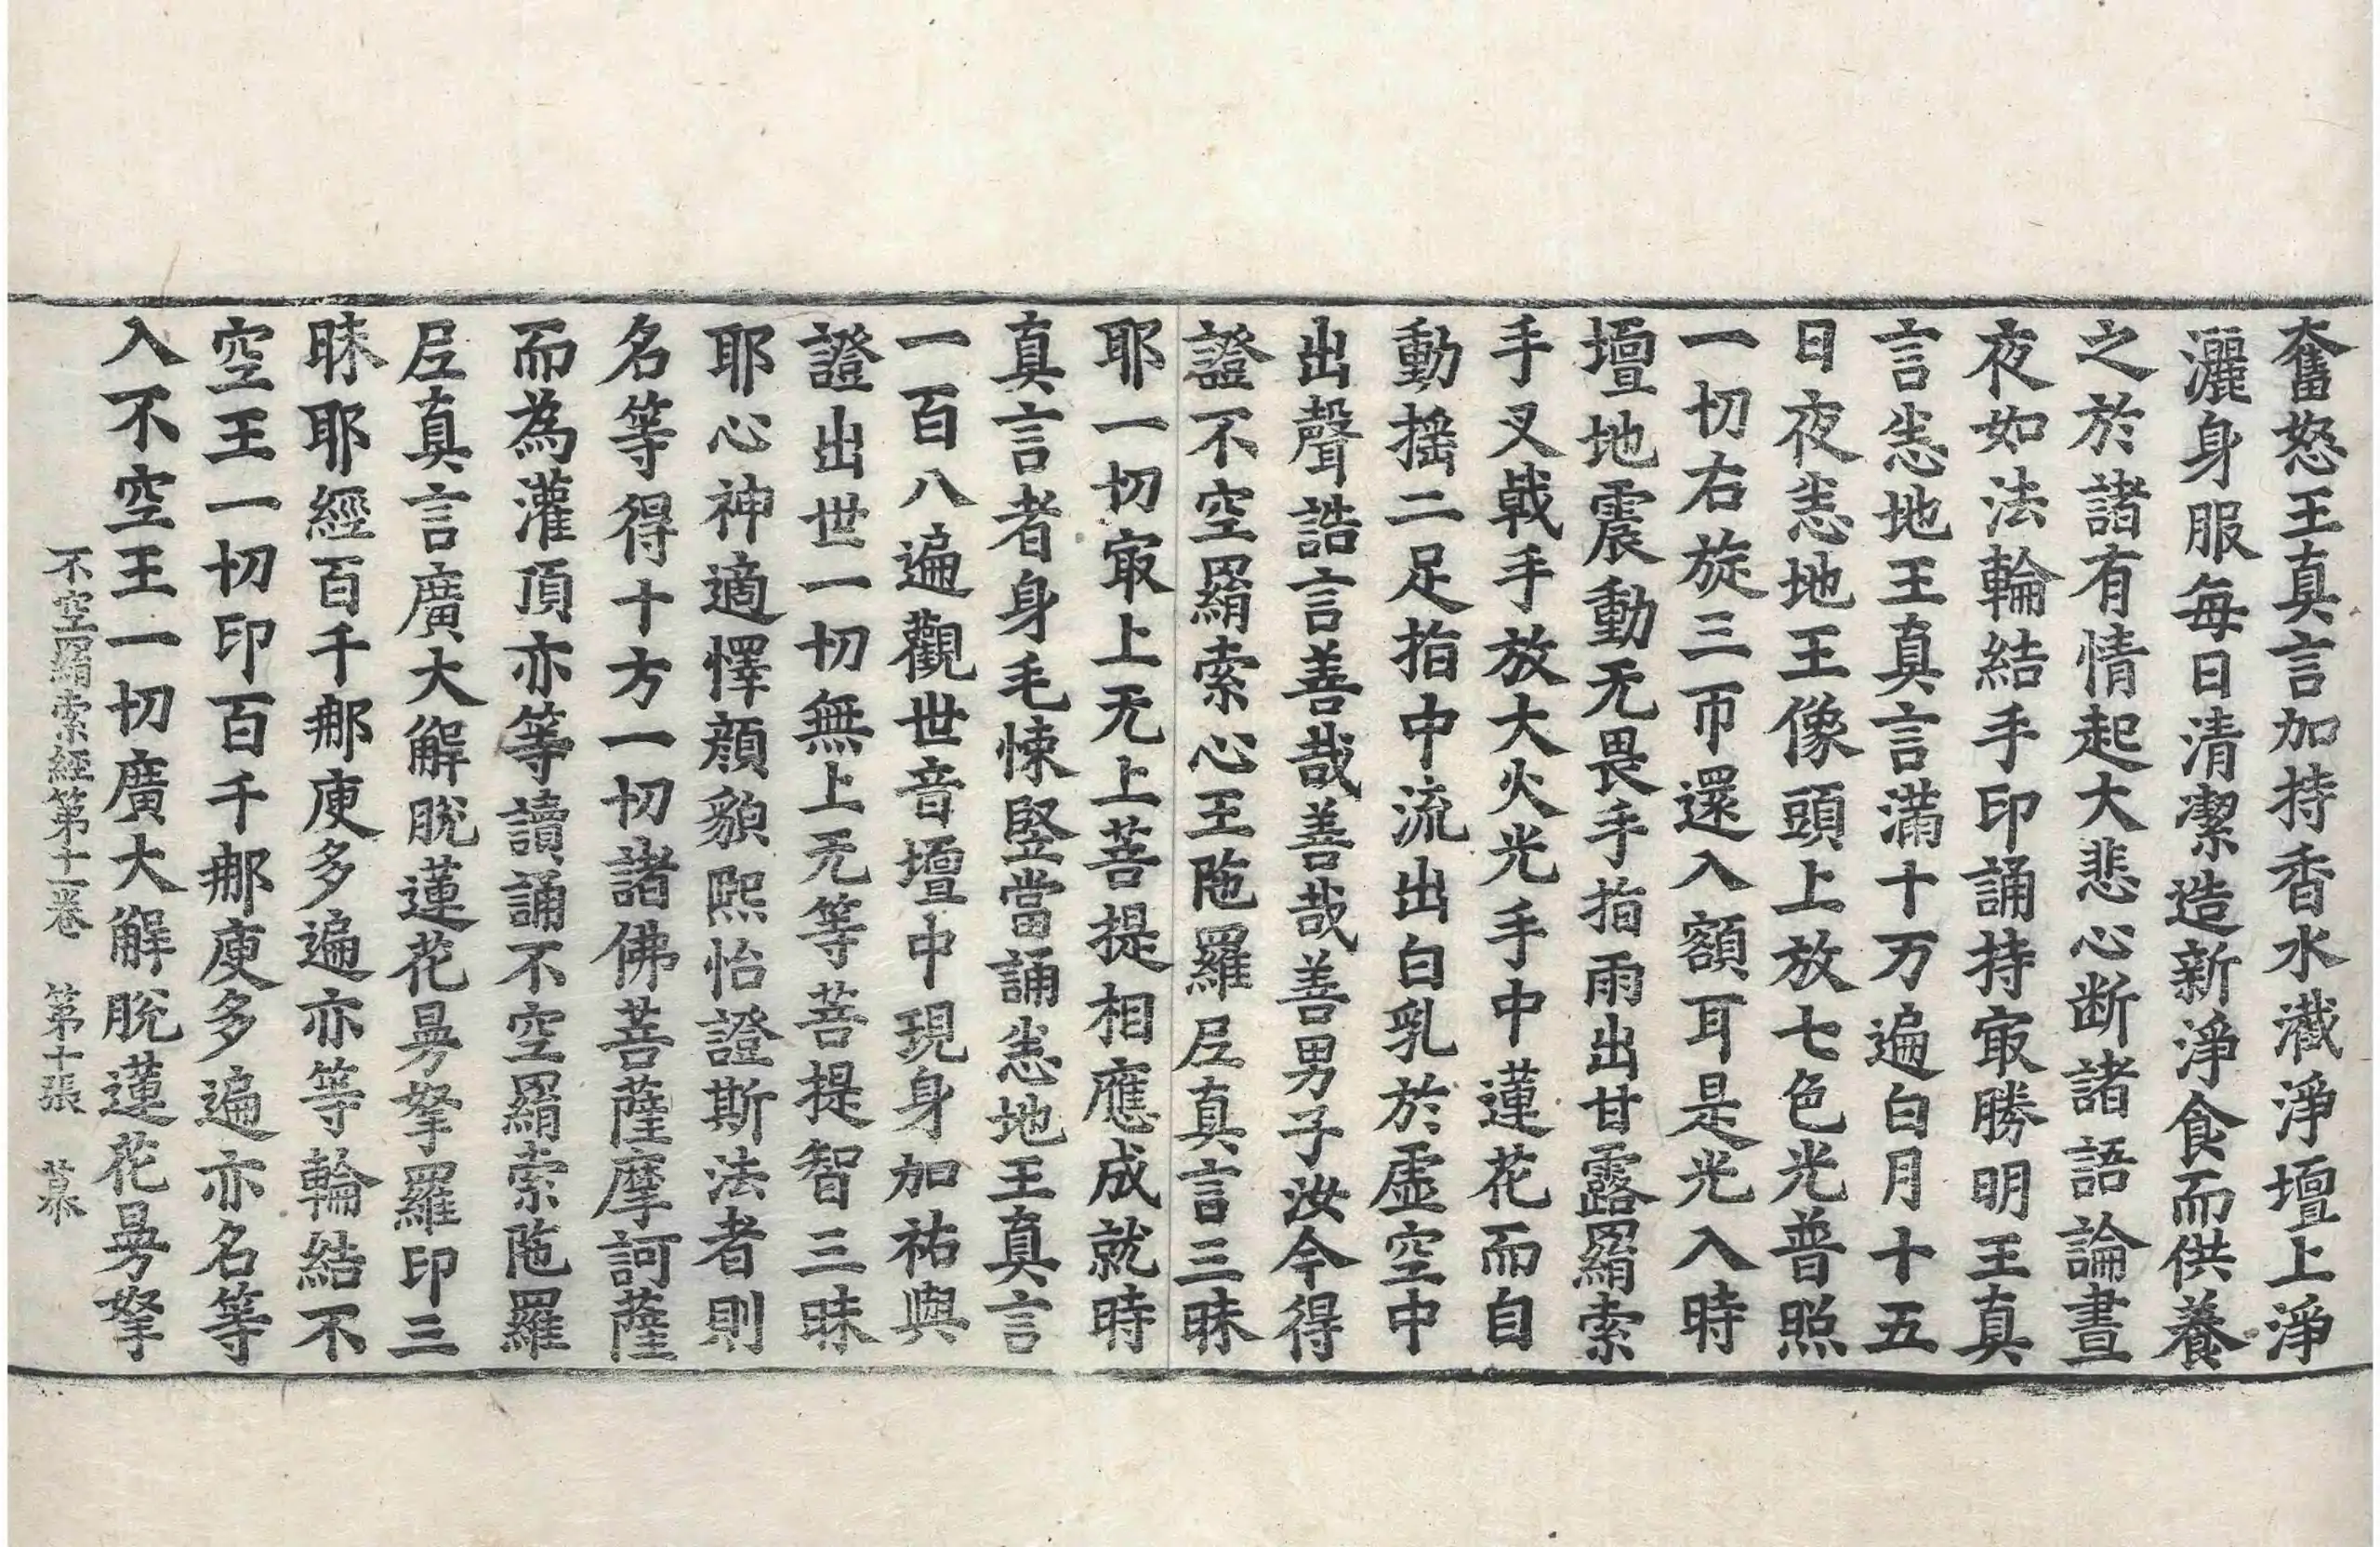 奮怒王真言加持香水灑淨壇上淨
灑身服每日清潔造新淨食而供養
之於諸有情起大悲心断諸語論晝
夜如法輪結手印誦持㝡勝明王真
言悉地王真言滿十万遍白月十五
日夜悉地王像頭上放七色光普照
一切右旋三帀還入額耳是光入時
壇地震動无畏手指雨出甘露羂索
手叉戟手放大火光手中蓮花而自
動揺二足指中流出白乳於虛空中
出聲誥言善哉善哉善男子汝今得
證不空羂索心王陁羅尼真言三昧
耶一切㝡上无上菩提相應成就時
真言者身毛悚竪當誦悉地王真言
一百八遍觀世音壇中現身加祐與
證出世一切無上无等菩提智三昧
耶心神適懌顔貌熙怡證斯法者則
名等得十方一切諸佛菩薩摩訶薩
而為灌頂亦等讀誦不空羂索陁羅
尼真言廣大解脫蓮花曼拏羅印三
昧耶經百千那庾多遍亦等輪結不
空王一切印百千那庾多遍亦名等
入不空王一切廣大解脫蓮花曼拏
不空羂索經第十一卷 第十張 慕